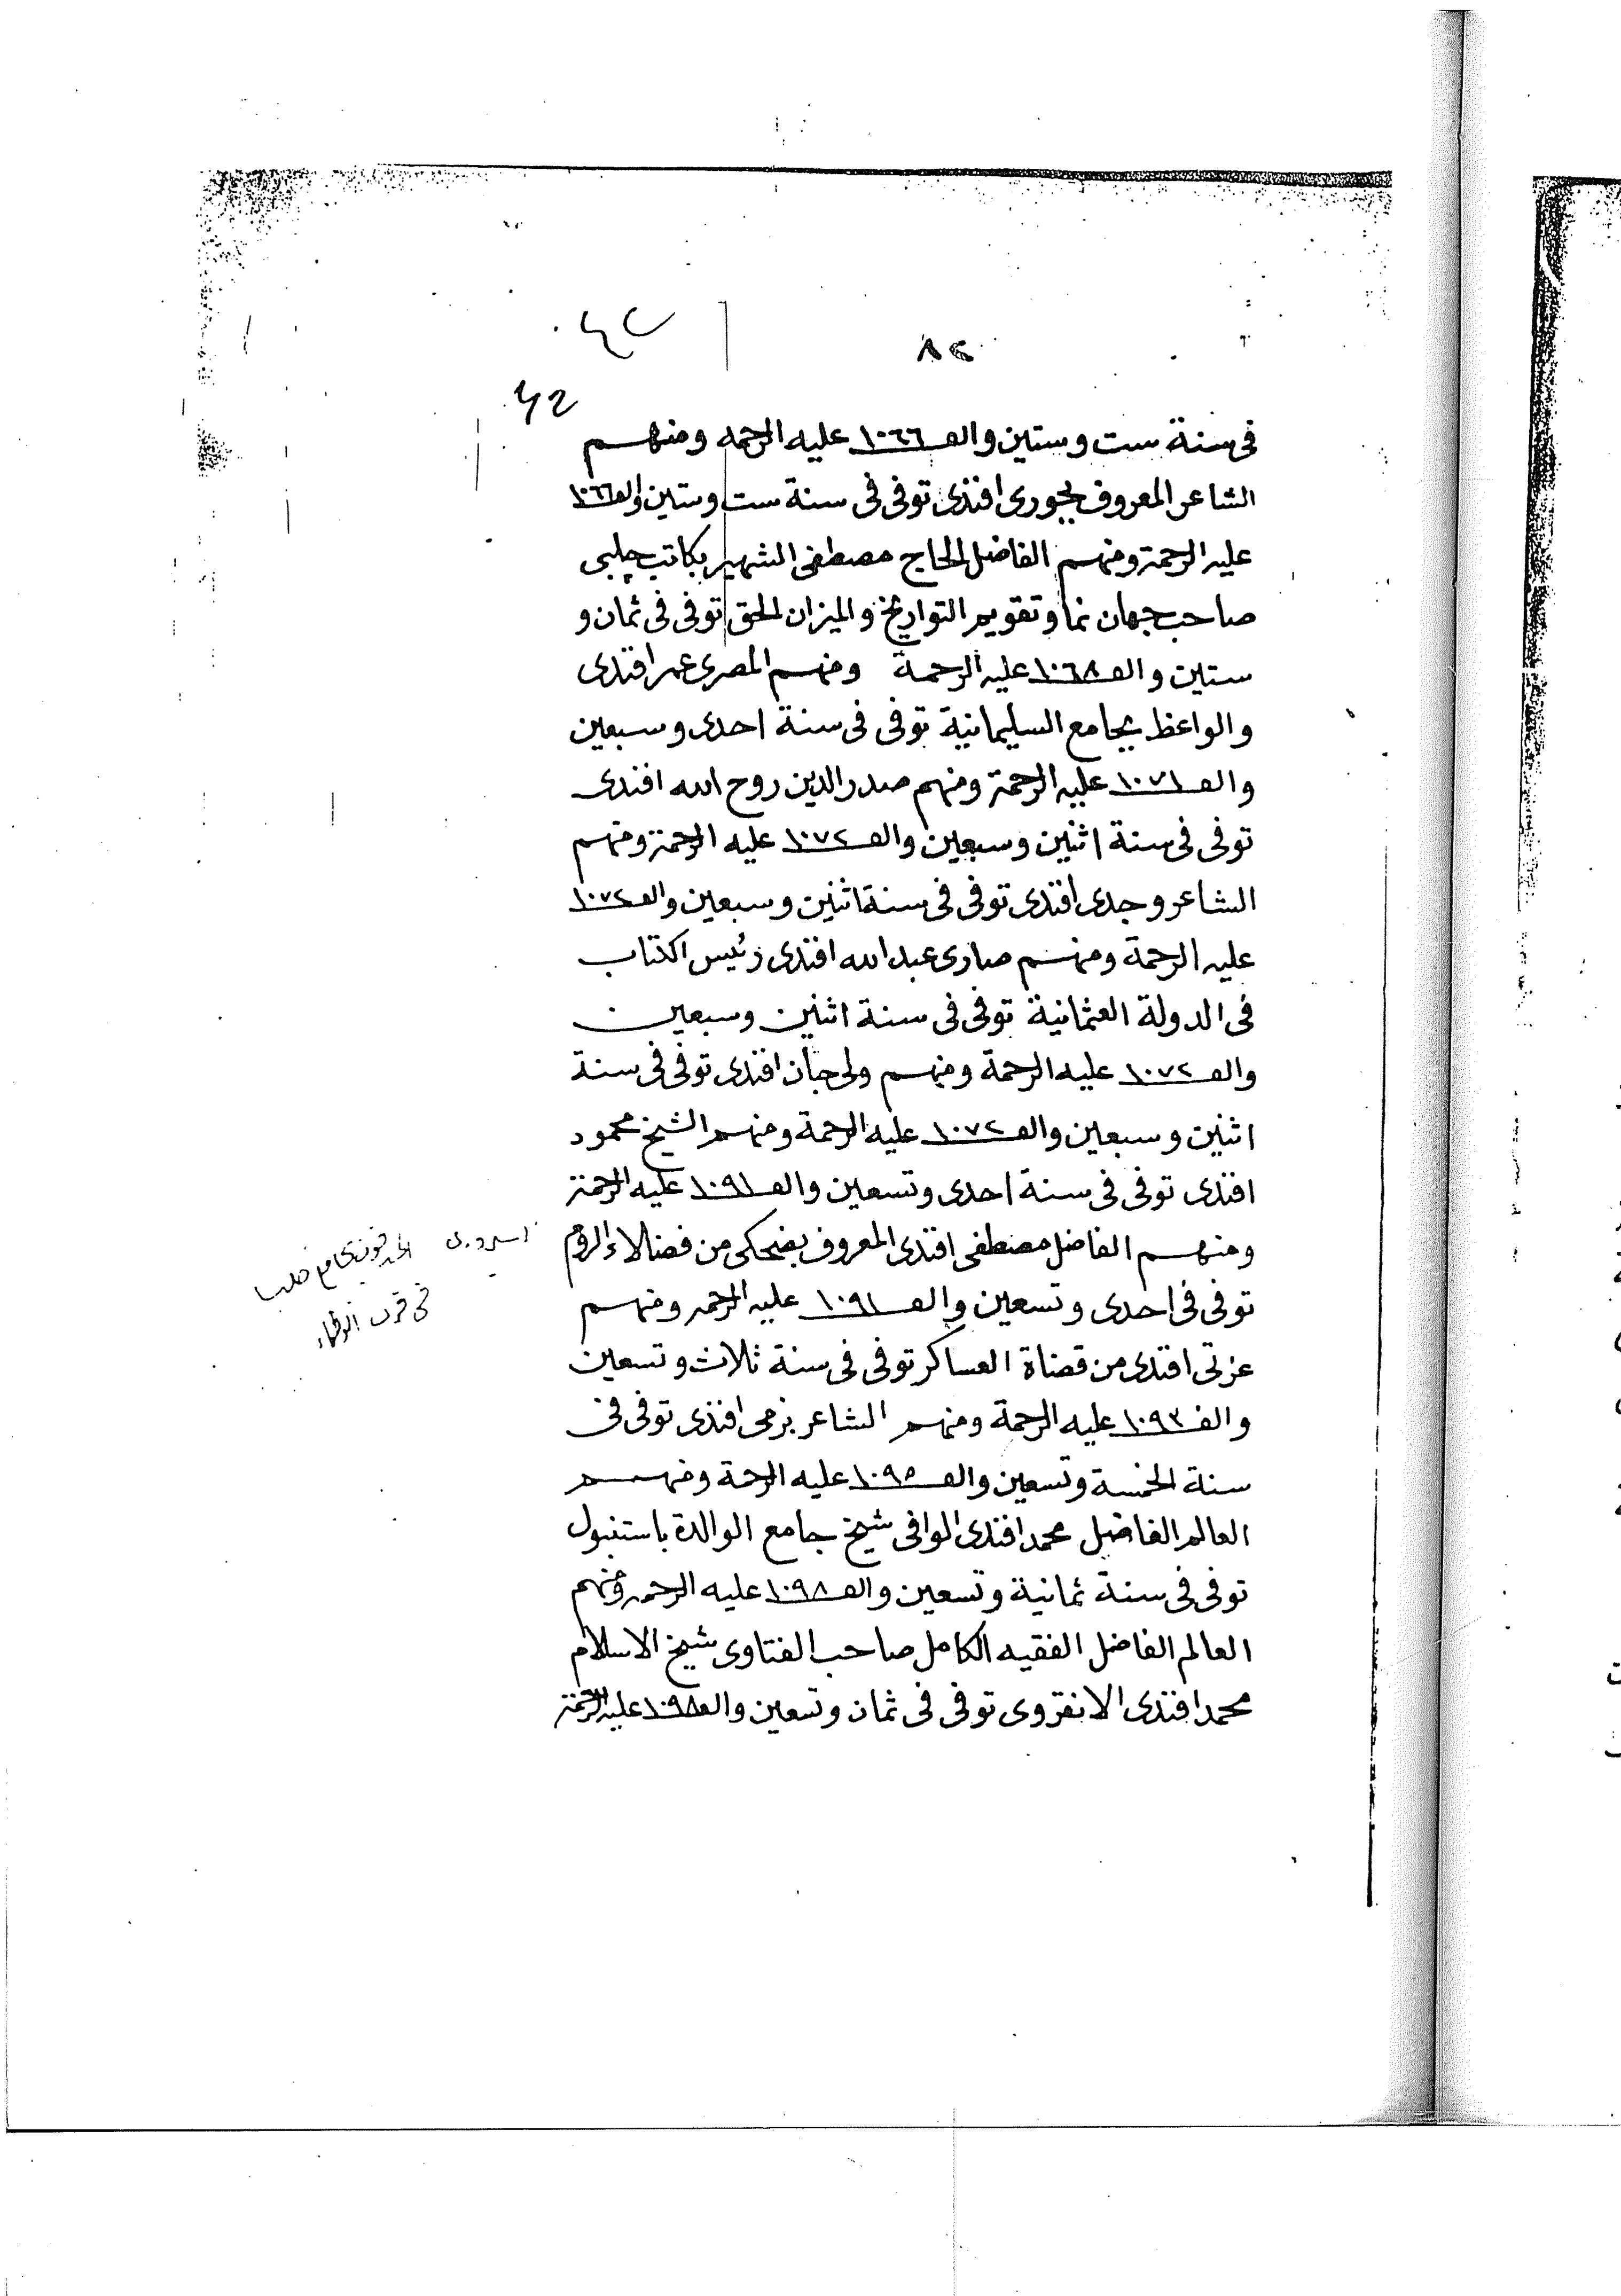 ٤٢
٨٢
42
فى سنة ست وستين والف ١٠٦٦ عليه الرحمه ومنهم
الشاعر المعروف بجورى افندى توفى فى سنة ست وستين والف ١٠٦٦
عليه الرحمة ومنهم الفاضل الحاج مصطفى الشهير بكاتب چلبى
صاحب جهان نما وتقويم التواريخ والميزان الحق توفى فى ثمان و
ستين والف ١٠٦٨ عليه الرحمة ومنهم المصرى عمر افندى
والواعظ بجامع السليمانية توفى فى سنة احدى وسبعين
والف ١٠٧١ عليه الرحمة ومنهم صدر الدين روح الله افندى
توفى فى سنة اثنين وسبعين والف ١٠٧٢ عليه الرحمة ومنهم
الشاعر وجدى افندى توفى فى سنة اثنين وسبعين والف ١٠٧٢
عليه الرحمة ومنهم صارى عبد الله افندى رئيس الكتاب
فى الدولة العثمانية توفى فى سنة اثنين وسبعين
والف ١٠٧٢ عليه الرحمة ومنهم ولى جان افندى توفى فى سنة
اثنين وسبعين والف ١٠٧٢ عليه الرحمة ومنهم الشيخ محمود
افندى توفى فى سنة احدى وتسعين والف ١٠٩١ عليه الرحمة
ومنهم الفاضل مصطفى افندى المعروف بضحكى من فضالاء الروم
توفى فى احدى وتسعين والف ١٠٩١ عليه الرحمه ومنهم
عزتى افندى من قضاة العساكر توفى فى سنة ثلاث وتسعين
والف ١٠٩٣ عليه الرحمة ومنهم الشاعر بزمى افندى توفى فى
سنة الخمسة وتسعين والف ١٠٩٥ عليه الرحمة ومنهم
العالم الفاضل محمد افندى الوافى شيخ جامع الوالدة باستنبول
توفى فى سنة ثمانية وتسعين والف ١٠٩٨ عليه الرحمه ومنهم
العالم الفاضل الفقيه الكامل صاحب الفتاوى شيخ الاسلام
محمد افندى الانقروى توفى فى ثمان وتسعين والف ١٠٩٨ عليه الرحمة